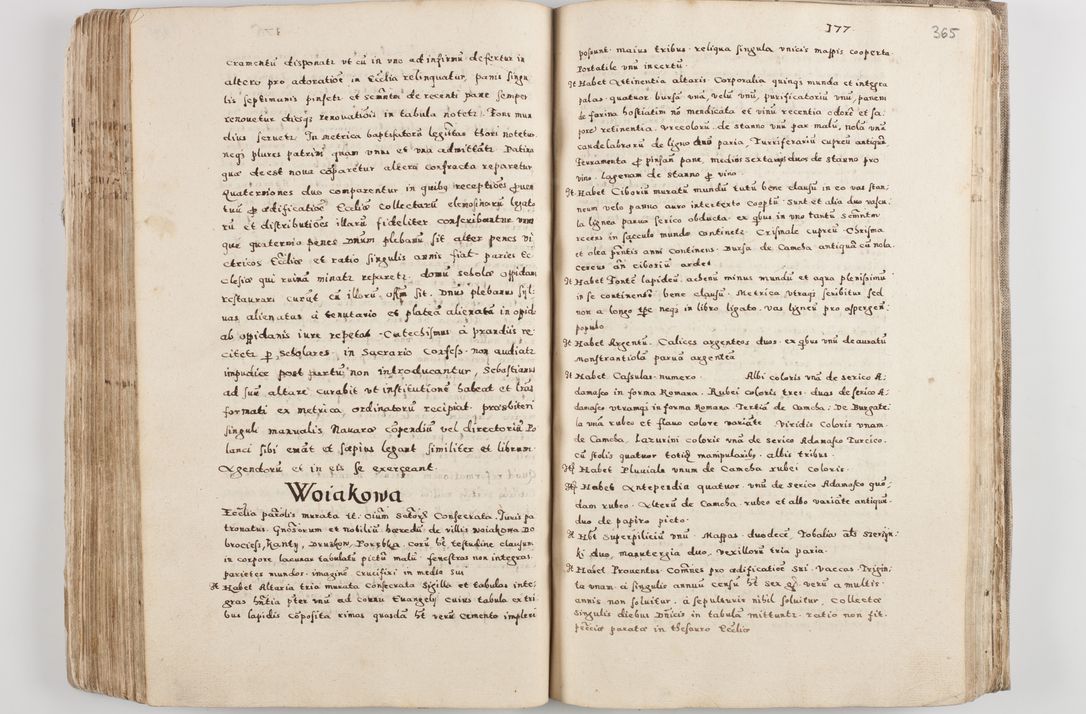 cramentũ disponatr vt cũ in vno ad infirmũ defertur in
altero pro adoratioẽ in Ecclia relinquatur, panis singu
lis septimanis pinsetr et semẽtm de recenti pane semper
renouetur diesqȝ renovatiõis in tabula notetr. Fons mun
dius seruetr. In metrica baptisatorũ legittas thori notetur,
neqȝ plures patrini quam vnus et vna admittatr. Patina
quæ deest noua cõparetur altera confracta reparetur.
Quaterniones duo comparentur in quibȝ receptiões
et ædificatioẽ Eccliæ Collectarũ elemosinarũ legato
rũ et distributiões illarũ fideliter conscribantur
quẽ quaternio penes Dnum plebanũ sit alter penes vi
ctricos Eccliæ et ratio singulis annis fiat. paries Ec
clesiæ qui ruinã minatr reparetr. domũ scholæ oppidani
restaurari curẽt cũ illorũ offm sit. Dnus plebanus syl
uas alienatas à tenutario et plateã alienatã in opid
ab oppidanis iure repetat. Catechismus à prandiis re
citetr ꝑ scholares, in Sacrario Confess. non audiatr
impudicæ post partũ non introducantur, Sebastianus
ad suũ altare curabit vt institutionẽ habeat et lrãs
formati ex metrica, ordinatorũ recipiat. præsbiteri
singuli manualis Nauaræ cõpendiũ vel directoriũ Po
lanci sibi emãt et sæpius legant similiter et librum
Agendorũ et in eis se exerceant.
Woiakowa
Ecclia paroĩlis murata tt. Oium Sctorȝ Consecrata. Iuris pa
tronatus. Gnosorum et nobiliũ hæredũ de villis Woiakowa Do
brociesz, Kanty, Druzkow, Porębka. Corũ hẽt testudine clausum
in corpore lacunar tabulatũ pictũ malũ. fenestras non integras.
parietes mundos. imaginẽ crucifixi in medio sui
It Habet Altaria tria murata Consecrata Sigilla et tabulas inte¬
gras hñtia præter vnũ ad cornu Euangelij cuius tabula ex tri
bus lapidis cõposita rimas quasdã hẽt verũ cemento impleri
177
365
possunt. maius tribus. reliqua singula vnicis mappis cooperta
Portatile vnũ incertũ.
It Habet Attinentia altaris. Corporalia quinqȝ munda et integra
palas quatuor bursã vnã, velũ vnũ, purificatoriũ vnũ, panem
de farina hostiatim nõ mendicata et vinũ recentia odorẽ et sa¬
porẽ retinentia. Vrceolorũ de stanno vnũ par malũ, nolã vnã
candelabrorũ de ligno paria, Turriferariũ cupreũ antiquũ.
Ferramenta ꝑ pinsan pane, medios sextarios duos de stanno pro
vino. lagenam de stanno ꝑ vino.
It Habet Ciboriũ muratũ mundũ tutũ bene clausũ in eo vas stan¬
neum velo panno auro intertexto cooptũ. Sunt et alia duo vascu
la lignea parua serico obducta. ex qbus in vno tantũ semẽtm
recens in sacculo mundo continetr. Crismale cupreũ Chrisma
et olea prntis anni continens. Bursa de Camcha antiqua cũ nola.
Cereus añ ciboriũ ardet
It Habet Fontẽ lapideũ. achenũ minus mundũ et aqua plenissimũ
in se continentẽ bene clausũ. Metrica vtraqȝ scribitur sed
non a longo tpe neqȝ in libro ligato. vas ligneũ pro aspergen:
populo
It Habet Argentũ. Calices argenteos duos. ex qbus vnũ deauratũ
monstrantiolã paruã argenteã
It Habet Cassulas numero Albi coloris vnã de serico A¬
damasco in forma Romana. Rubei coloris tres. duas de serico A¬
damasco vtramqȝ in forma Romana Tertiã de Camcha. De Burgate
la vnã rubeo et flauo colore variate. Viridis coloris vnam
de Camcha, Lazurini coloris vnã de serico Adamasco Turcico.
cũ stolis quatuor totiqȝ manipularibȝ. albis tribus.
It Habet Pluviale vnum de Camcha rubei coloris.
It Habet Antependia quatuor. vnũ de serico Adamasco quo¬
dam rubeo. Alterũ de Camcha. rubeo et albo variate antiquũ
duo de papiro picto.
It Hẽt Superpiliciũ vnũ. Mappas. duodecẽ, Tobalias als Szerzyn¬
ki duo, manutergia duo, vexillorũ tria paria.
It Habet Prouentus Comẽs pro ædificatioẽ Sui. Vaccas Trigin¬
ta vnam à singulis annuũ censũ hẽt Sex verũ a multis
annis non soluitur. à sepulturis nihil soluitur, Collectæ
singulis diebus Dñicis in tabula mittuntr. ratio non fit.
pecciæ paratæ in thesauro Eccliæ